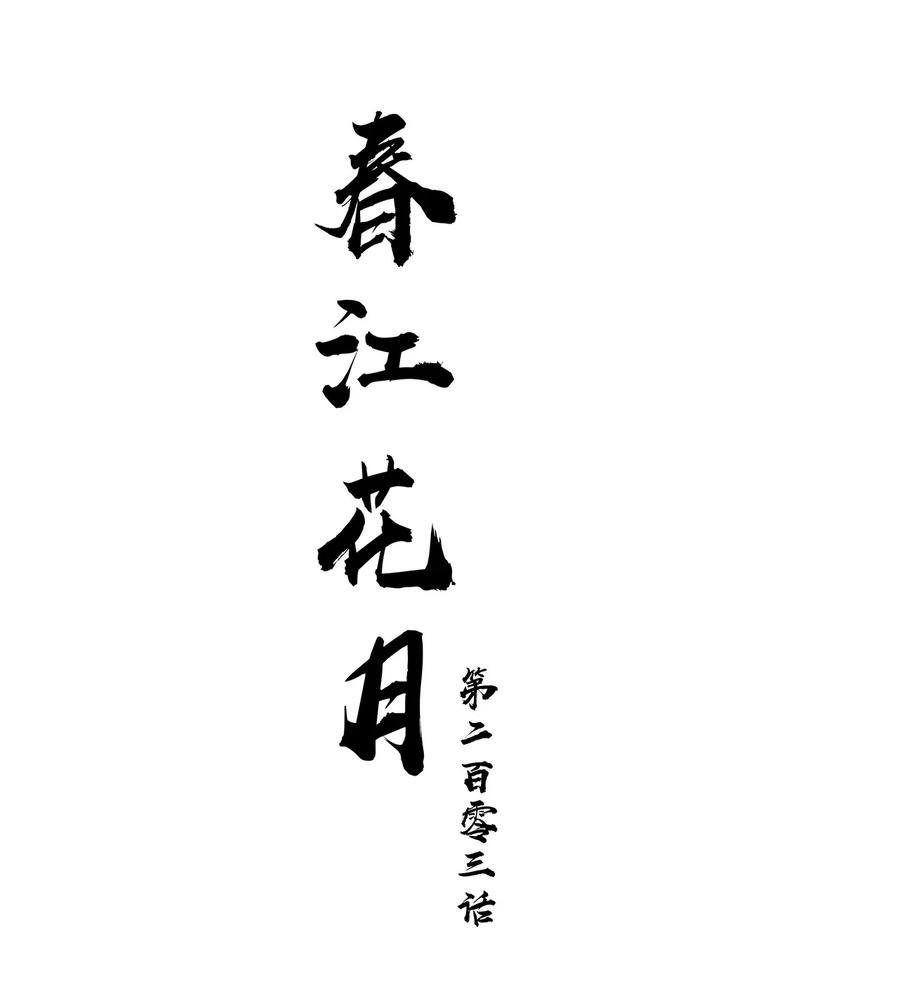 春江花月
第二百零三话